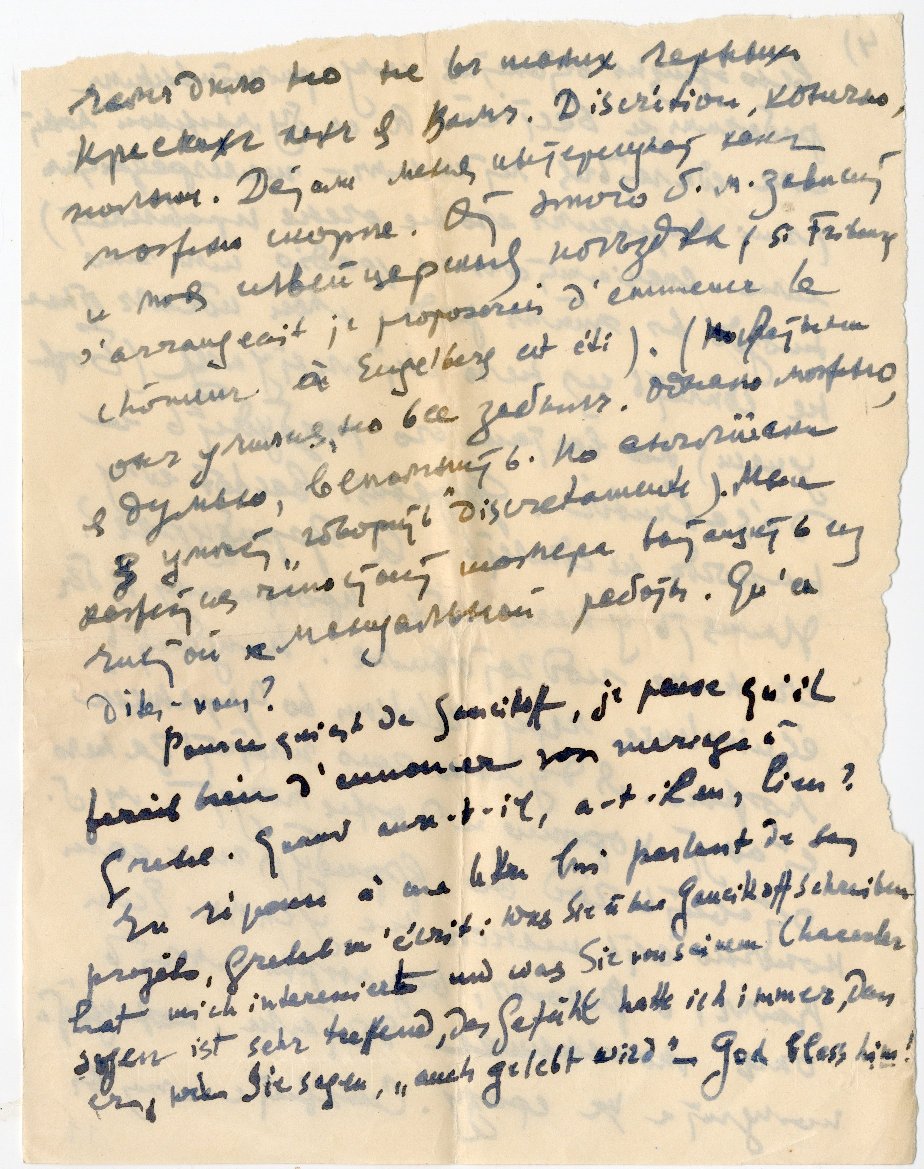 но не въ такихъ черныхъ
краскахъ какъ я Вамъ. Discrétion, конечно,
полная. меня интересуетъ какъ
можно скорѣе. Отъ этого б. м. зависитъ
и моя швейцарская поѣздка (si Fribourg
s'arrangeait je proposerais d'emmener le
chômeur à Engelberg cet été). (
онъ учился, но все забылъ. Однако можно,
я думаю, вспомнить. По английски
умѣетъ говорить "discretamente").
работы. Qu'en
dites-vous?
Pour ce qui est de Goucikoff, je pense qu'il
ferait bien d'annoncer son mariage à
Gretel. Quand aura-t-il, a-t-il eu, lieu?
En réponse à ma lettre lui parlant de ses
projets, Gretel m'écrit: was Sie über Goucikoff schreiben
hat mich interessiert und was Sie von seinem Character
sagen ist sehr treffend, das Gefühl hatte ich immer, dass
er, wie Sie sagen, „auch gelebt wird" – God bless him!